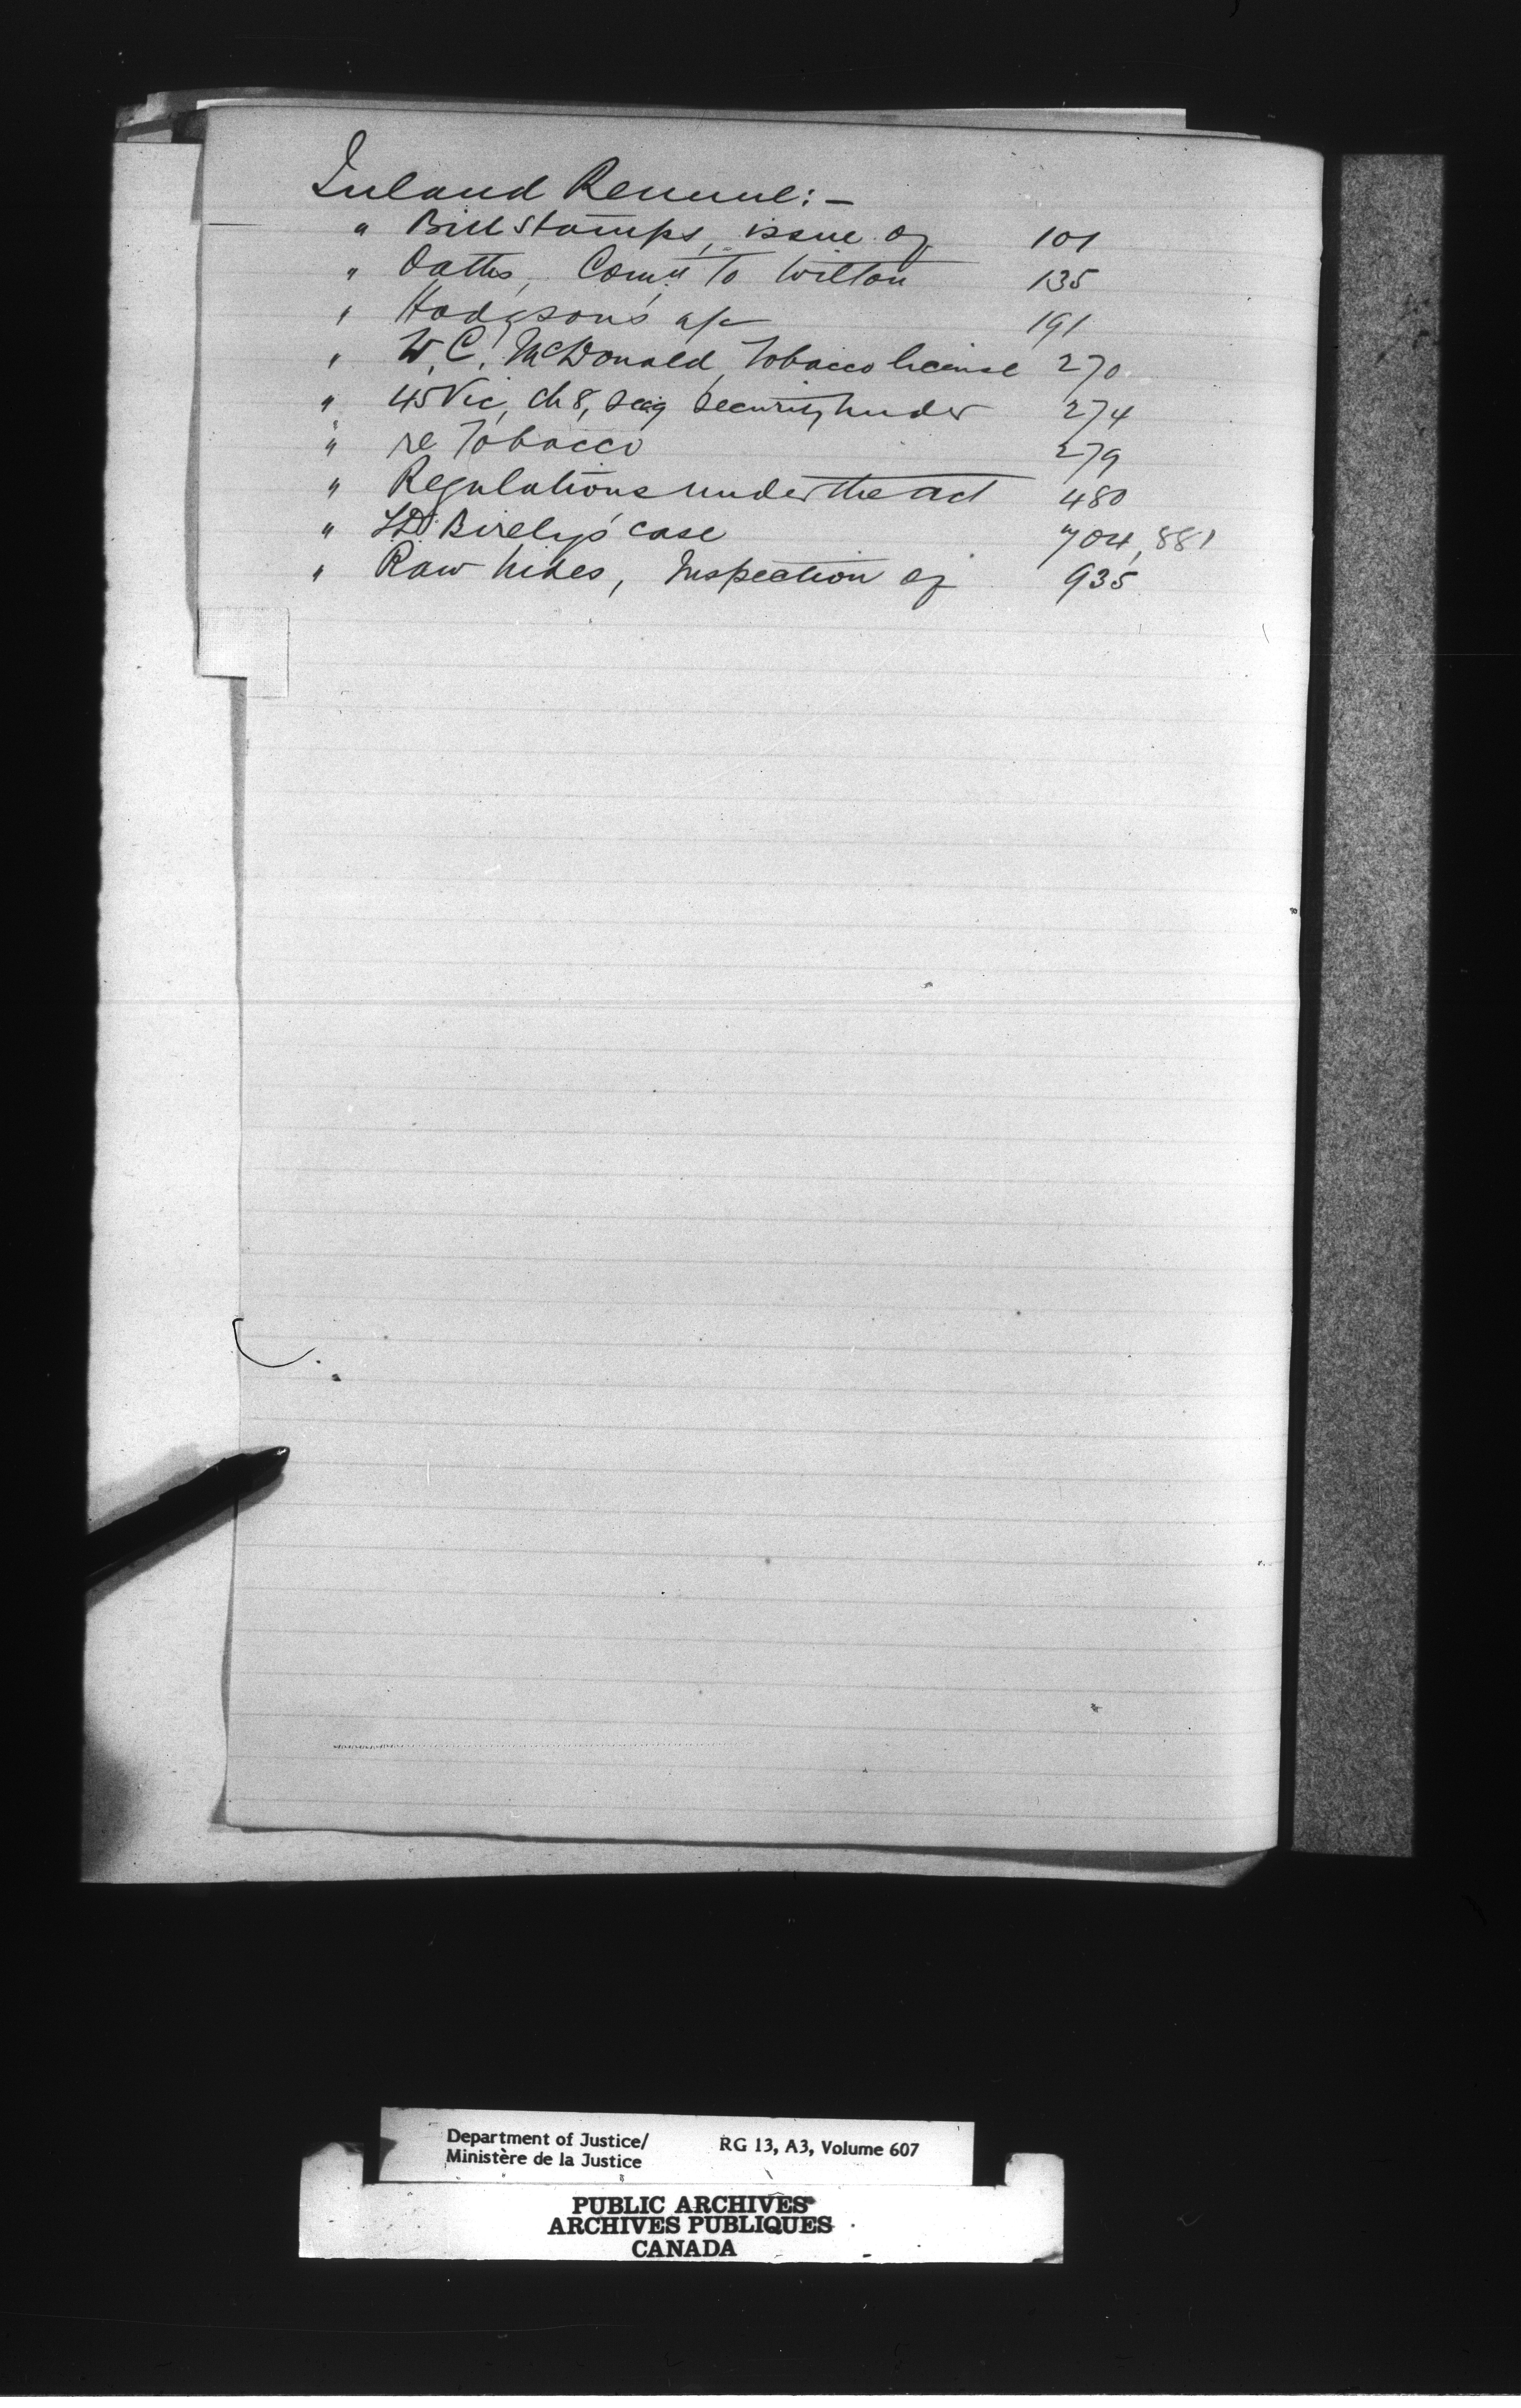 Inland Revenue:-
" Bill Stamps, issue of 101
" Oaths, Comn. to Wilton 135
" Hodgson's a/c 191
" W.C. McDonald, Tobacco license 270
" 45 Vic, ch 8, Sec 9 Security under 274
" re Tobacco 279
" Regulations under the act 480
" Birely's case 704, 881
" Raw hides, Inspection of 935
Department of Justice/ RG 13, A3, Volume 607
Ministère de la Justice
PUBLIC ARCHIVES
ARCHIVES PUBLIQUES
CANADA